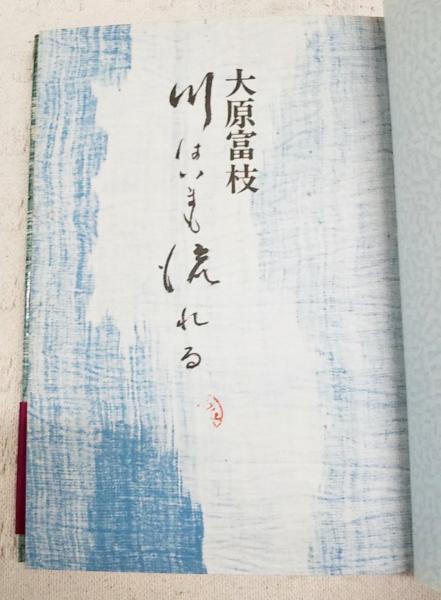 大原富枝
川はいまも流れる